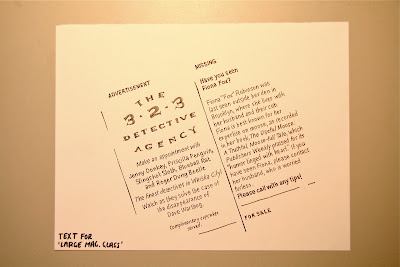 ADVERTISEMENT
THE
3·2·3
DETECTIVE
AGENCY
Make an appointment with
Jenny Donkey, Priscilla Penguin,
Slingshot Sloth, Bluebell Rat
and Roger Dung Beetle
The finest detectives in Whiska City!
Watch as they solve the case of
the disappearance of
Dave Warthog.
Complimentary cupcakes
served.
MISSING
Have you seen
Fiona Fox?
Fiona "Fox" Robinson was
last seen outside her den in
Brooklyn, where she lives with
her husband and their cub.
Fiona is best known for her
expertise on moose, as recorded
in her book, The Useful Moose:
A Truthful, Moose-full Tale, which
Publishers Weekly praised for its
"humor tinged with heart." If you
have seen Fiona, please contact
her husband, who is worried
Please call with any tips!
FOR SALE
TEXT FOR
'LARGE MAG. CLASS'